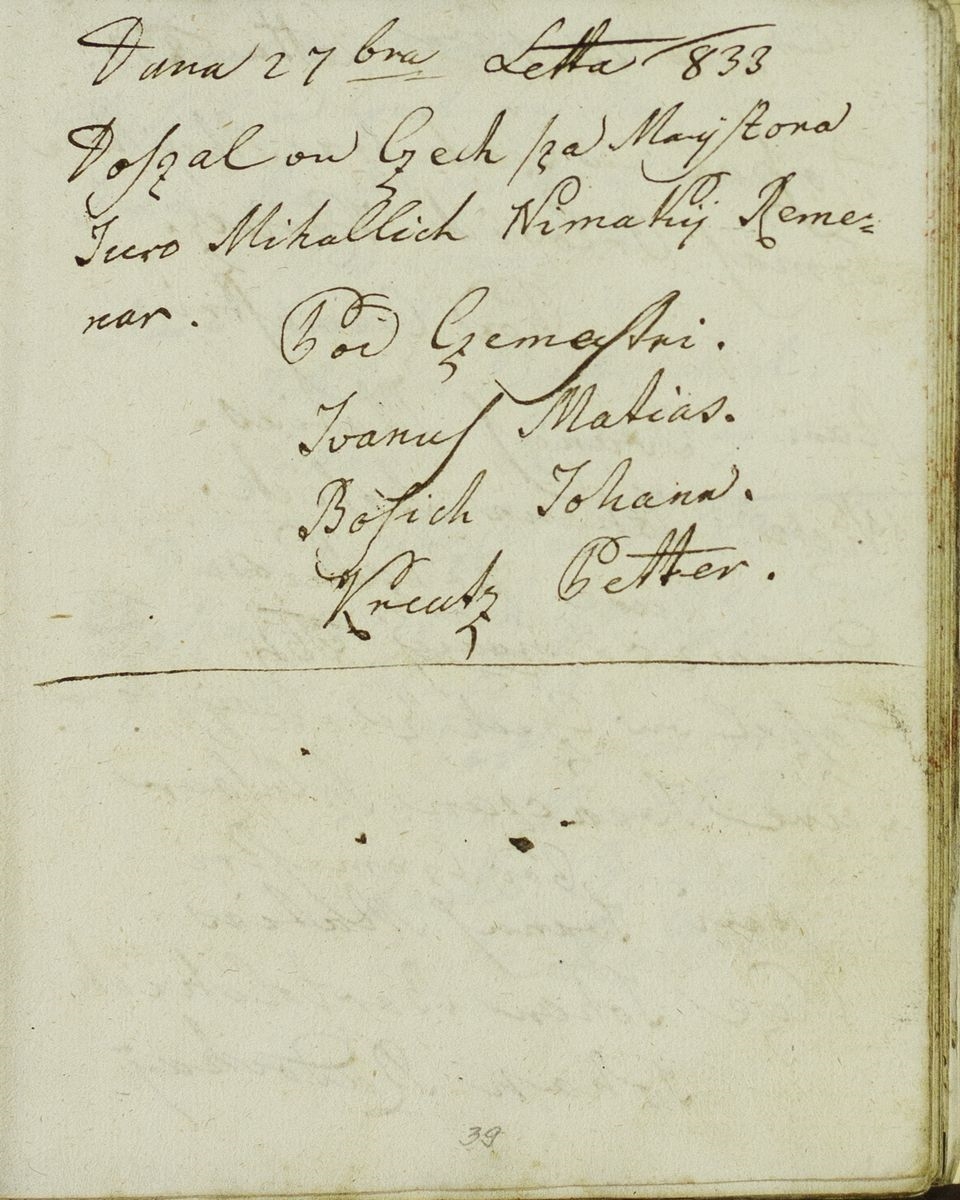 Dana 27 bra Letta 833
Doſzal ou Czech ſza Mayſtora
Juro Mihallich Nimatkij Reme=
nar.
Pod Czemeſtri.
Ivanuſ Matias.
Boſich Johann.
Kreutz Petter.
39